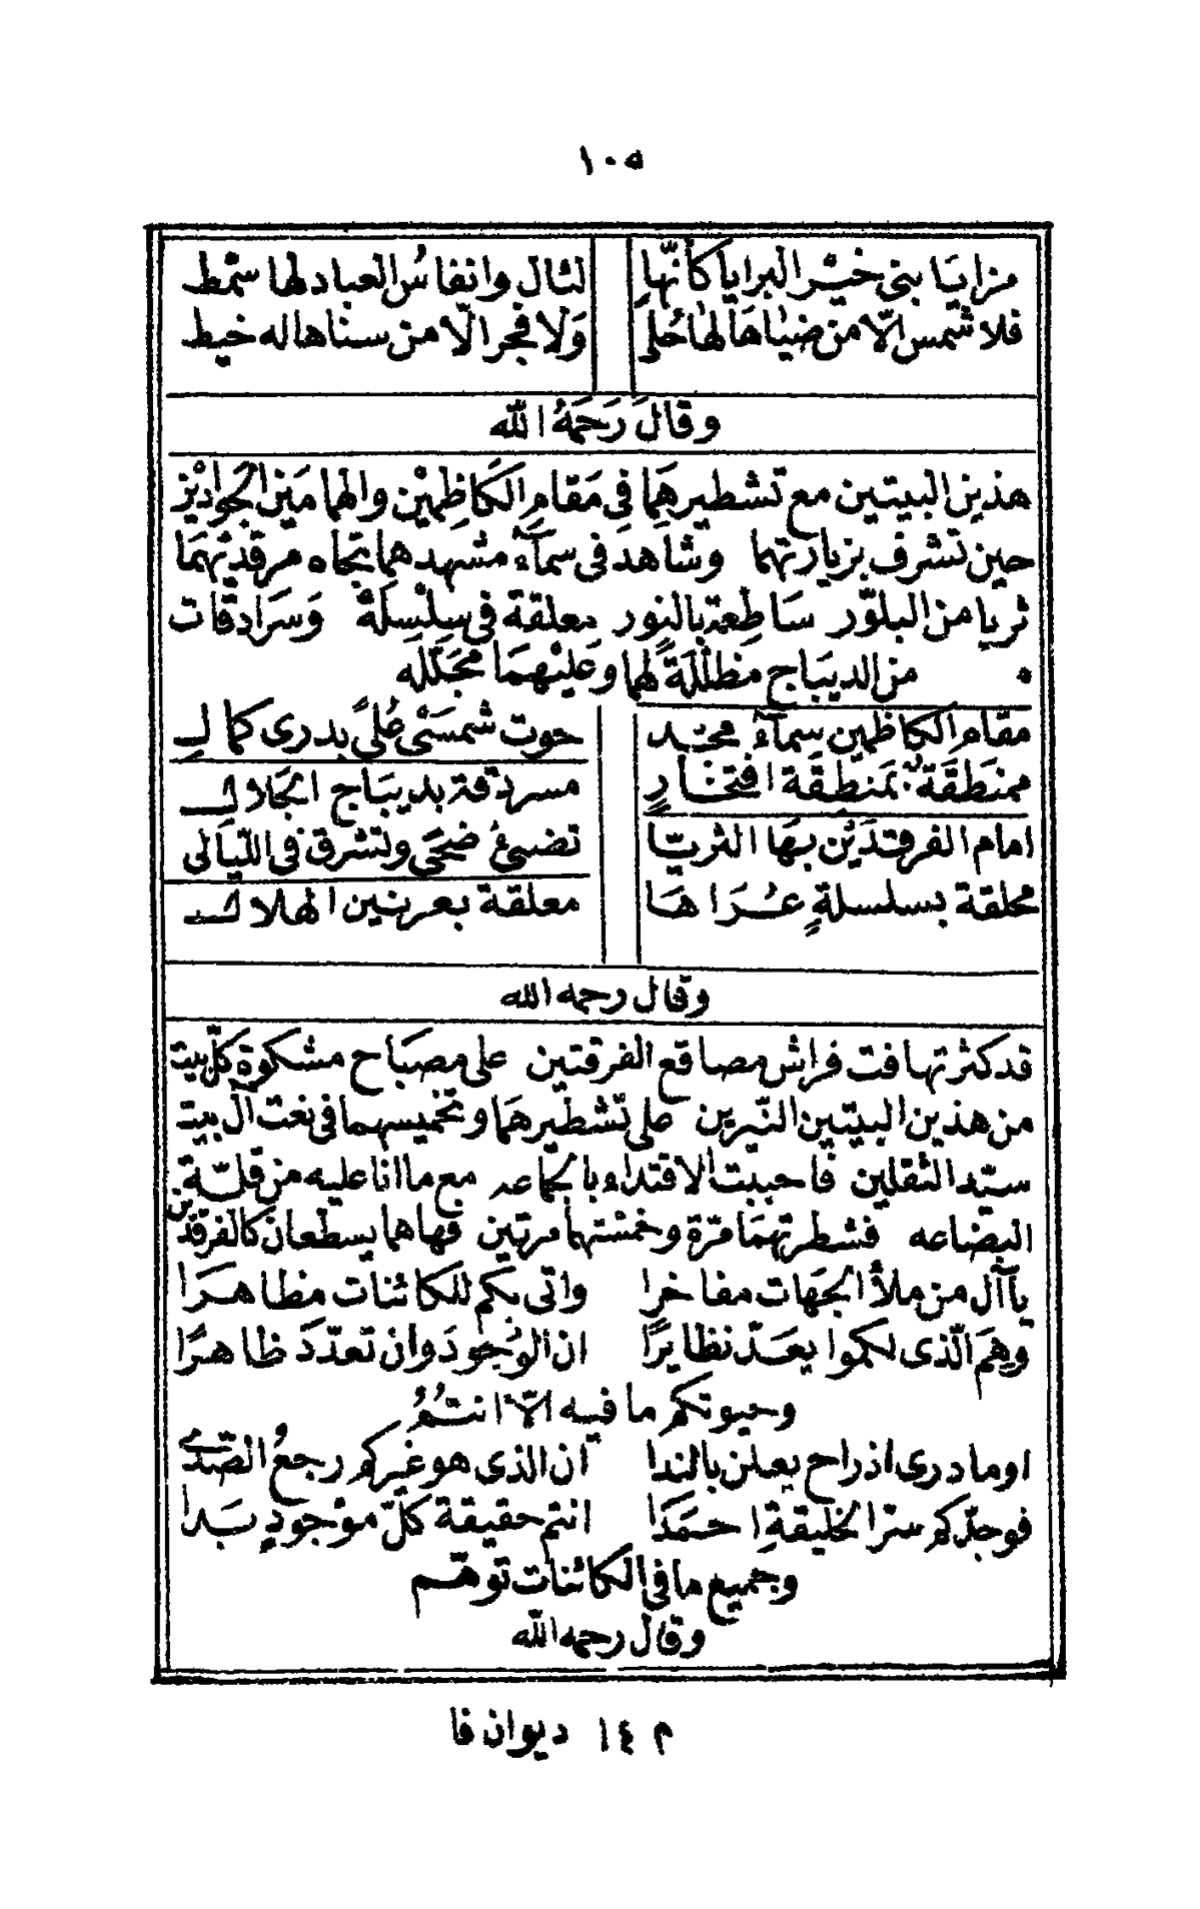 ١٠٥
مزايا بني خير البرايا كأنها لئال وانفاس العباد لها سمط
فلا شمس الّا من ضياها لها حُلى وَلا فجر الّا من سناها له خيط
وقالَ رَحِمَهُ الله
هذين البيتين مع تشطيرهما في مَقام الكاظِمَيْن والهمامَين الجوادَيْن
حين تشرف بزيارتهما وشاهد في سمآء مشهدهما تجاه مرقدَيْهمَا
ثريا من البلوّر ساطِعة بالنور معلقة في سِلْسِلَة وَسرادقات
من الديبَاج مظلّلَةً لهما وعَليْهمَا مُجَلّله
مقام الكاظمين سمآء مجد حوت شمسَيْ عُلىً بدري كمال
ممنطَقَة بمَنطِقَة افتخارٍ مسردقة بديبَاج الجَلال
امام الفرقدَيْن بهَا الثريّا تضيئُ ضُحَى وتشرق في اللّيَالى
محلقة بسلسلةٍ عُرَاها معلقة بعرنين الهلال
وقال رحمه الله
قد كثر تهافت فراش مصاقع الفرقتين على مصبَاح مشكوة كلّ بيت
من هذين البيتين النّيرين على تشطيرهمَا وتخميسهما في نعت آل بيت
سيّد الثقلين فاحببت الاقتداء بالجماعه مع ما انا عليه من قلّة
البضاعه فشطرتهمَا مَرّة وخمّستهما مرتين فهاهما يسطعان كالفرقدين
ياآل من ملأ الجهَات مفاخرا واتى بكم للكائنات مظاهرَا
وهِمَ الّذى لكموا يعَدّ نظايرًا ان الوُجودَ وان تعدّدَ ظاهرًا
وحيوتكم ما فيه الّا انتمُ
اوما درى اذ راح يعلن بالندا ان الذى هو غيركم رجعُ الصّدى
فوجدكم سرّ الخليقةِ احمَدَا انتم حقيقة كلّ موْجودٍ بَدا
وجميع ما في الكائنات توهّم
وقال رحمه الله
م ١٤ ديوان فا